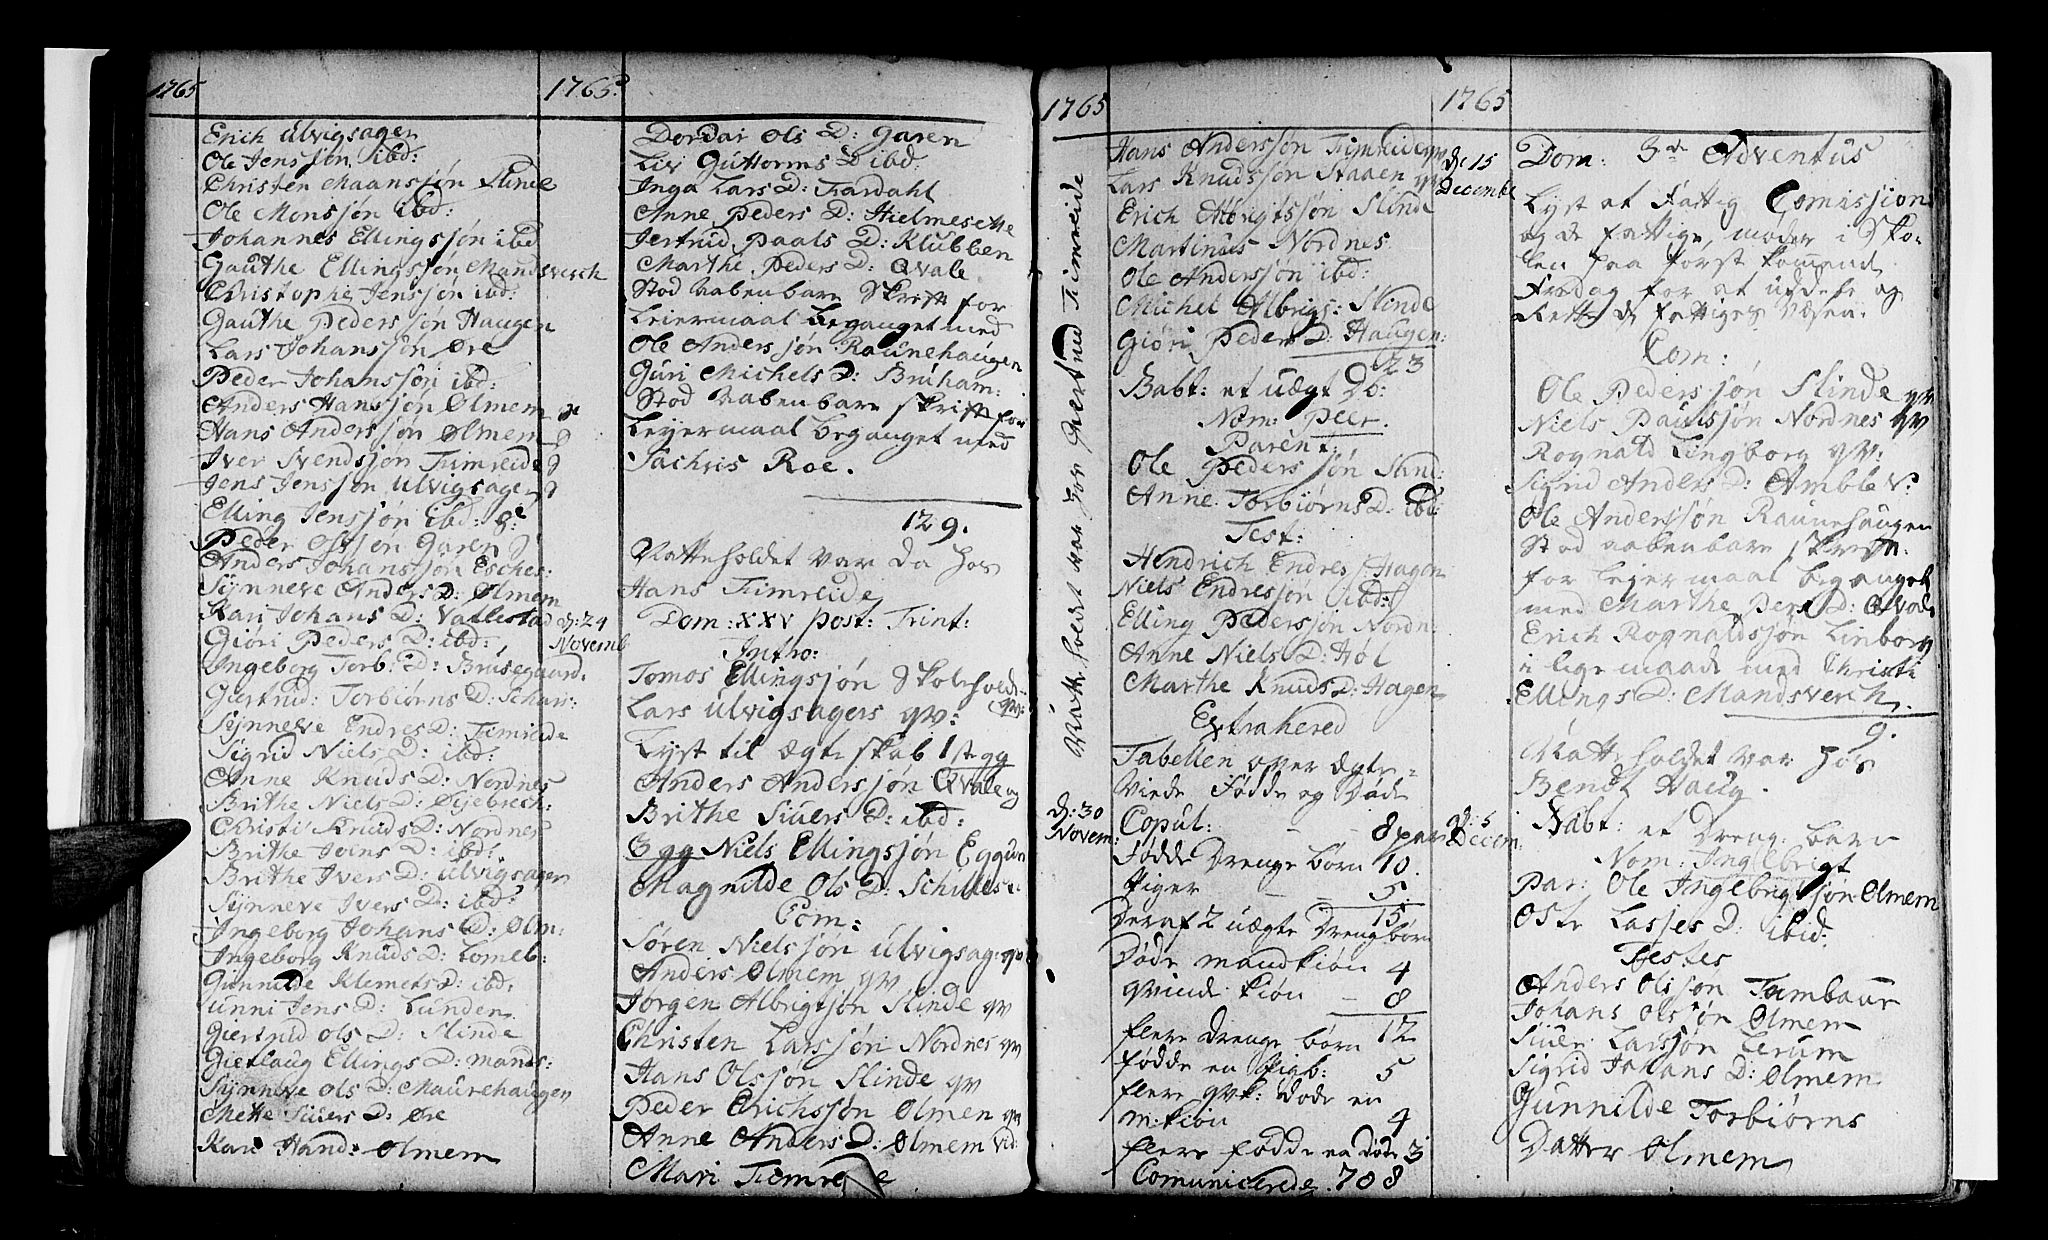 1765
Erich Ulvigsagen
Ole Jenssøn ibd:
Christen Maanssøn Slinde
Ole Monssøn ibd:
Johannes Ellingssøn ibd
Gauthe Ellingssøn Mandsverch
Christopher Jenssøn ibd:
Gauthe Peders søn Haugen
Lars Johanssøn Øre
Peder Johanssøn ibd:
Anders Hanssøn Olmem
Hans Anders søn Olmem
Iver Svendssøn Timreide
Jens Jenssøn Ulvigsagen
Elling Jenssøn ibd:
Peder Olssøn Garen
Anders Johanssøn Esches:
Synneve Anders D: Olmem
Kari Johans D: Vatlestad
Giøri Peders D: ibd:
Ingeborg Torb: D: Brusegaard.
Giertrud: Torbiørns D: Schars:
Synneve Endres D: Timreide
Sigrid Niels D: ibd:
Anne Knuds D: Nordnes
Brithe Niels D:
Christi Knuds D: Nordnes
Brithe Joens D: ibd:
Brithe Ivers D: Ulvigsagen
Synneve Ivers D: ibd:
Ingeborg Johans D: Olm:
Ingeborg Knuds D: Lomeb:
Gunnilde Klemets D: ibd.
Unni Jens D: Lunden
Giertrud Ols D: Slinde
Gietlaug Ellings D: mands:
Synneve Ols D: Maurehaugen
Mette Siuers D: Øre
Kari Hand: Olmem
1765
D: 24
Novemb
Dordai Ols D: Garen
Liv Guttorms D ibd:
Inga Lars D: Fardahl
Anne Peders D: Hielmesethe
Jertrud Paals D: Klubben
Marthe Peders D: Qvale.
Stod aabenbare Skrift for
Leiermaal beganget med
Ole Anders søn Raunehaugen
Guri Michels D: Bruham:
Stod aabenbare skrift for
Leyermaal beganget med
Sachris Roe.
129.
Natteholdet var da hos
Hans Timreide
Dom: XXV post: Trint:
Intro:
Tomos Ellingssøn Skoleholde
Lars Ulvigsagers qv:
Lyst til ægteskab 1ste gg
Anders Anderssøn Qvale og
Brithe Siuers D: ibd:
3 gg Niels Ellingssøn Eggum
Magnilde Ols D:
Com:
Søren Nielssøn Ulvigsag: qv
Anders Olmem qv
Jørgen Albrigtsøn Slinde qv
Christen Larssøn Nordnes qv
Hans Olssøn Slinde qv
Peder Erichssøn Olmen qv
Anne Anders D: Olmem vid:
Mari Timreide
1765
Natteholdet var hos Giertrud Timreide
D: 30
Novem:
Hans Anderssøn Timreide qv
Lars Knudssøn Staaen qv
Erich Albrigtssøn Slinde
Martinus Nordnes
Ole Anderssøn ibd:
Michel Albrigs: Slinde
Giøri Peders D: Haugen:
23
Babt: et uægt Do:
Nom: Peer.
Parent:
Ole Peders søn Sand:
Anne Torbiørns D: ibd:
Test:
Hendrich Endres Hagen
Niels Endressøn ibd:
Elling Pederssøn Nordn:
Anne Niels D: Høl
Marthe Knuds D: Hagen
Extrahered
Tabellen over ægte-
viede Fødde og Døde
Copul: - - 8 par
Fødde Drenge børn 10.
Piger - - 5.
15
Deraf 2 uægte Drengbørn
Døde mandkiøn 4
qvinde kiøn - 8
flere Drenge børn 12
fødde en Pigb: 5
flere qvk: døde en
m:kiøn 4
flere fødde en døde 3
Comunicerede. 708
1765
D: 15
Decembe
D: 5
Decem:
Dom: 3die Adventus
Lyst at Fattig Comission
og de fattige, møder i Sko-
len paa først kommend
Fredag for at uddele og
Rette de fattiges Væsen:
Com:
Ole Peders søn Slinde qv
Niels Paulssøn Nordnes qv
Rognald Lingborg qv:
Sigrid Anders D: Amble v:
Ole Anderssøn Raunehaugen
Stod aabenbare skrift
for lejermaal beganget
med Marthe Pers D: Qvale
Erich Rognaldssøn Linborg
i lige maade med Christi
Ellings D: Mandsverch.
9.
Natteholdet var hos
Bendt Haug.
Babt: et Drenge barn
Nom: Ingebrigt
Par: Ole Ingebrigtsøn Olmem
Oste Lasses D: ibid:
Testes
Anders Olssøn Tambaur
Johans Olssøn Olmem
Siuer Larssøn Lerum
Sigrid Johans D: Olmem
Gunnilde Torbiørns
Datter Olmem